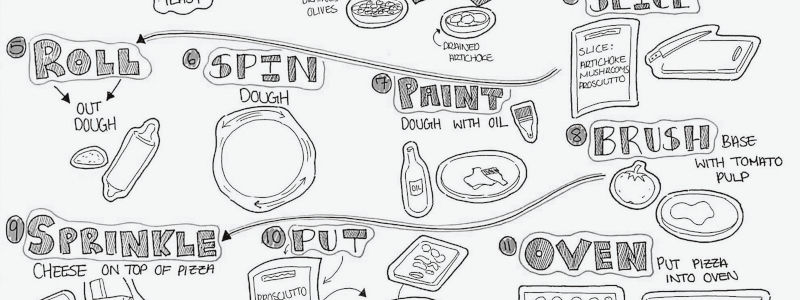 DRAINED
ARTICHOKE
OLIVES
SLICE
SLICE:
ARTICHOKE
MUSHROOMS
PROSCIUTTO
5 ROLL
OUT
DOUGH
6 SPIN
DOUGH
7 PAINT
DOUGH WITH OIL
OIL
8 BRUSH BASE
WITH TOMATO
PULP
9 SPRINKLE
CHEESE ON TOP OF PIZZA
10 PUT
PROSCIUTTO
11 OVEN PUT PIZZA
INTO OVEN